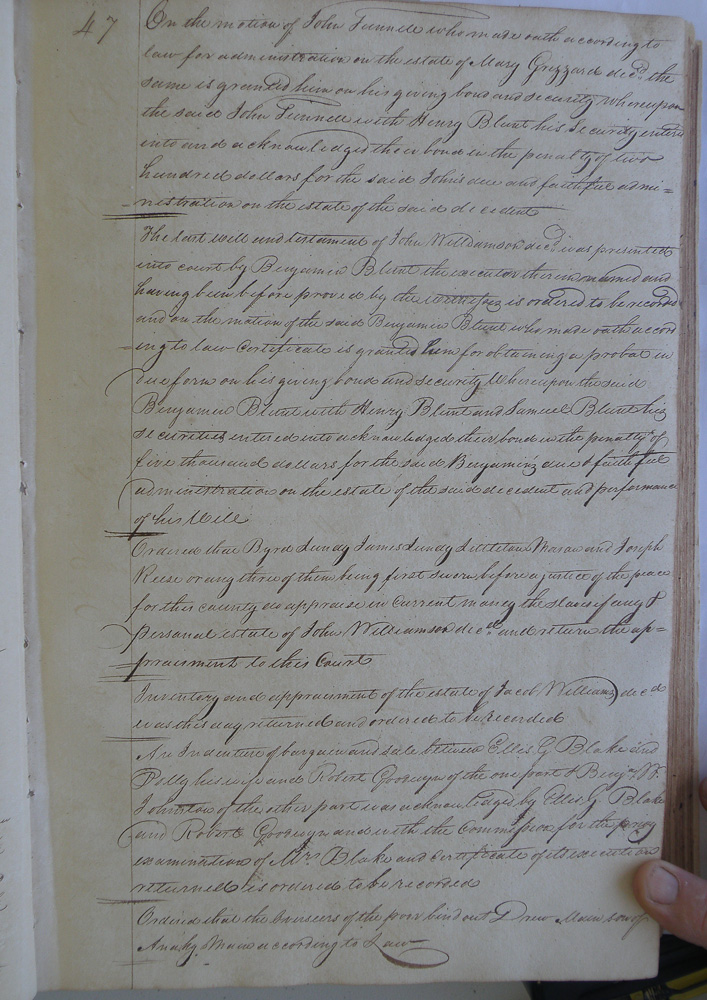 47
On the motion of John Tunnell who made oath according to
law for administration on the estate of Mary Grizzard decd. the
same is granted him on his giving bond and security whereupon
the said John Tunnell with Henry Blunt his Security entered
into and acknowledged their bond in the penalty of two
hundred dollars for the said John's due and faithful admi=
nistration on the estate of the said decedent
The last will and testament of John Williamson decd. was presented
into court by Benjamin Blunt the executor therein named and
having been before proved by the witnesses is ordered to be recorded
and on the motion of the said Benjamin Blunt who made oath accord
ing to law Certificate is granted him for obtaining a probat in
due form on his giving bond and security Whereupon the said
Benjamin Blunt with Henry Blunt and Samuel Blunt his
securities entered into acknowledged their bond in the penalty of
five thousand dollars for the said Benjamin's due & faithful
administration on the estate of the said decedent and performance
of his Will
Ordered that Byrd Lundy James Lundy Littleton Mason and Joseph
Reese or any three of them being first sworn before a justice of the peace
for this county do appraise in Current money the slaves if any &
personal estate of John Williamson decd. and return the ap=
praisment to this Court
Inventory and appraisment of the estate of Jacob Williams decd
was this day returned and ordered to be recorded
An Indenture of bargain and sale between Ellis G Blake and
Polly his wife and Robert Goodwyn of the one part & Benja. W.
Johnston of the other part was acknowledged by Ellis G Blake
and Robert Goodwyn and with the Commission for the privy
examination of Mrs. Blake and Certificate of its execution
returned is ordered to be recorded
Ordered that the overseers of the poor bind out Drew son of
according to Law